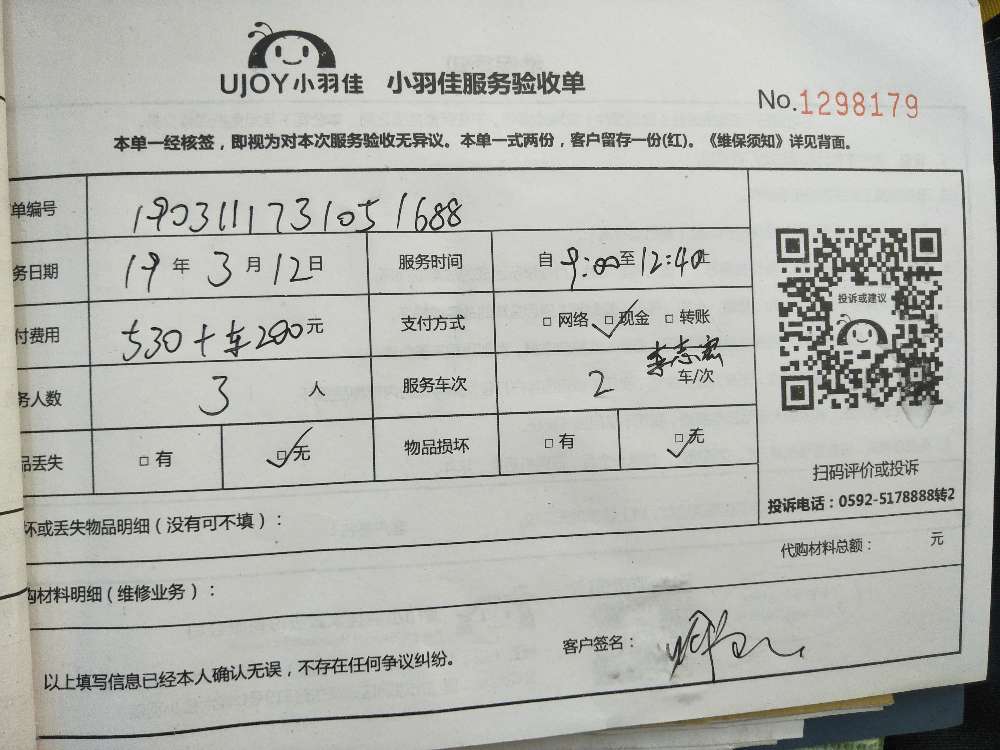 UJOY小羽佳 小羽佳服务验收单
No.1298179
本单一经核签，即视为对本次服务验收无异议。本单一式两份，客户留存一份(红)。《维保须知》详见背面。
单编号 1903111731051688
务日期 19 年 3 月 12 日 服务时间 自 9:00 至 12:40 止
付费用 530+车200元 支付方式 □ 网络 □ 现金 □ 转账
李志宏
务人数 3 人 服务车次 2 车/次
品丢失 □ 有 □ 无 物品损坏 □ 有 □ 无
投诉或建议
扫码评价或投诉
投诉电话：0592-5178888转2
坏或丢失物品明细（没有可不填）：
代购材料总额： 元
购材料明细（维修业务）：
以上填写信息已经本人确认无误，不存在任何争议纠纷。
客户签名：